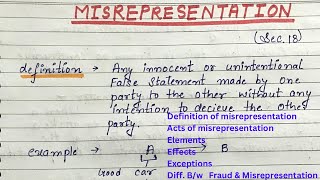 MISREPRESENTATION
(Sec. 18)
definition → Any innocent or unintentional
False statement made by one
party to the other without any
intention to decieve the other
party.
Definition of misrepresentation
Acts of misrepresentation
Elements
Effects
Exceptions
Diff. B/w Fraud & Misrepresentation
example → A → B
Good car